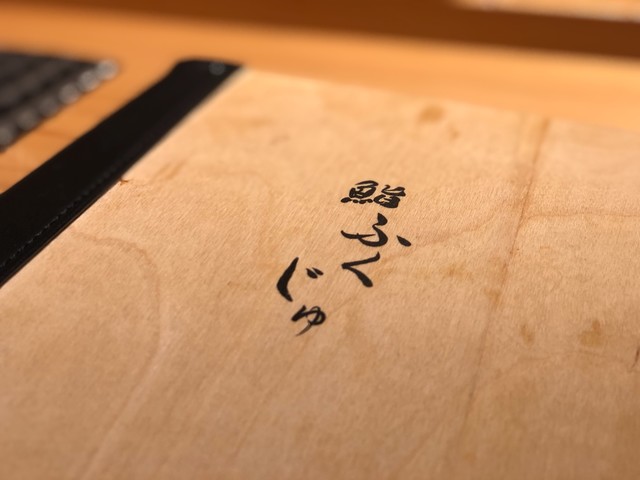 鮨
ふく
じゅ